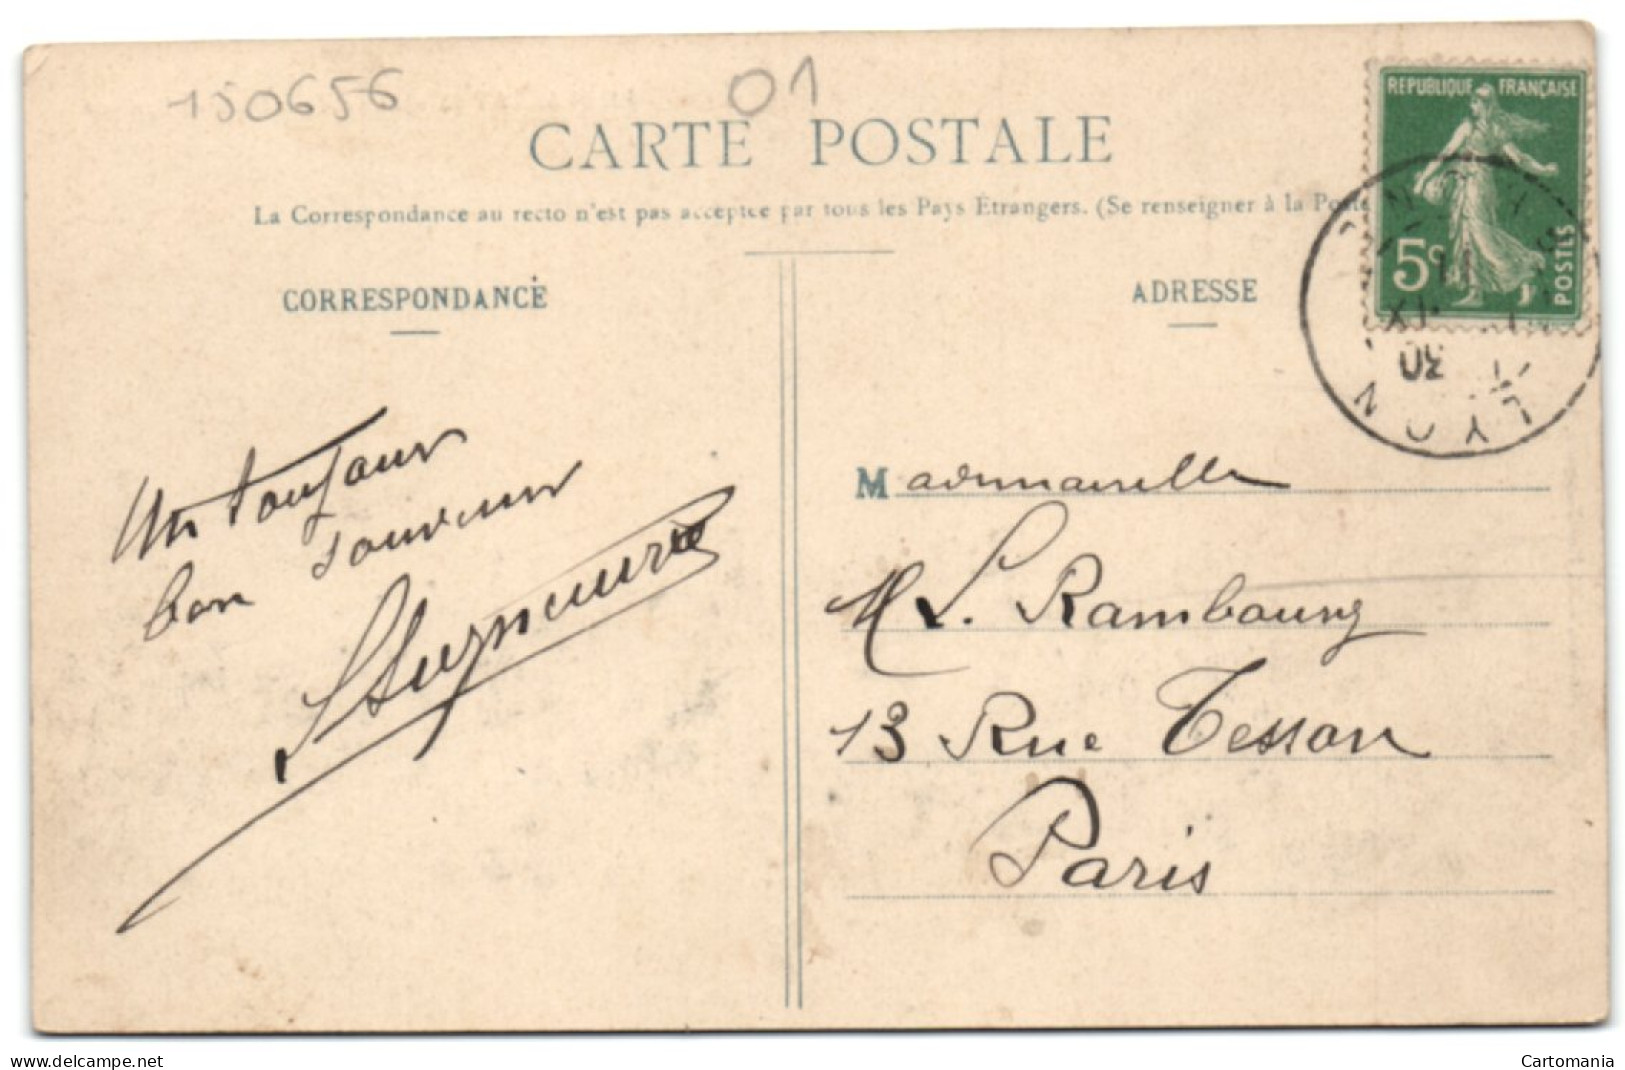 150656
01
CARTE POSTALE
La Correspondance au recto n'est pas acceptée par tous les Pays Étrangers. (Se renseigner à la Poste
CORRESPONDANCE
ADRESSE
REPUBLIQUE FRANÇAISE
5c
POSTES
LYON
Un toujours
bon souvenir
Mademoiselle
M L. Rambourg
13 Rue Tesson
Paris
www.delcampe.net
Cartomania